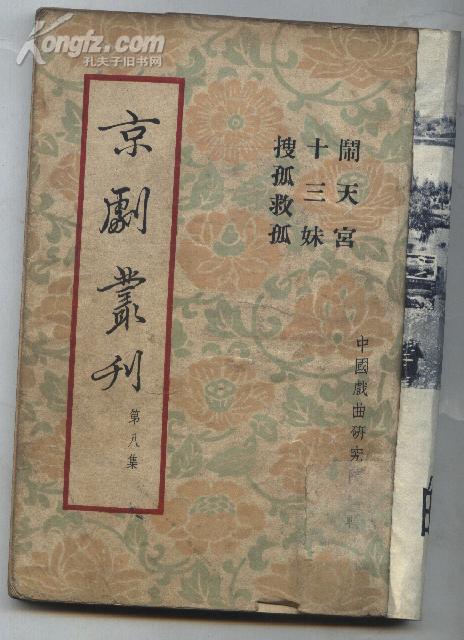 Kongfz.com
孔夫子旧书网
鬧天宮
十三妹
搜孤救孤
京劇叢刊
第八集
中國戲曲研究